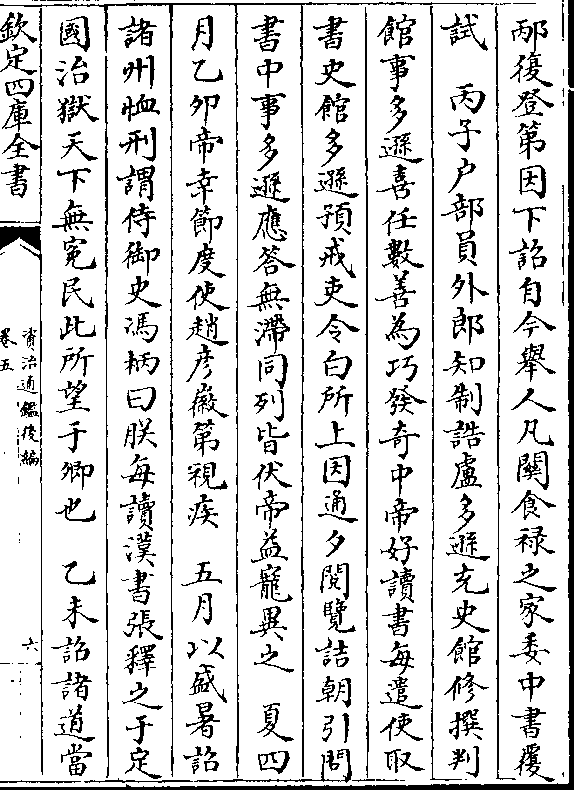 邴復登第因下詔自今舉人凡闗食禄之家委中書覆
試　丙子户部員外郎知制誥盧多遜充史館修撰判
館事多遜喜任數善為巧發奇中帝好讀書每遣使取
書史館多遜預戒吏令白所上因通夕閱覽詰朝引問
書中事多遜應答無滯同列皆伏帝益寵異之　夏四
月乙夘帝幸節度使趙彦徽第視疾　五月以盛暑詔
諸州恤刑謂侍御史馮柄曰朕每讀漢書張釋之于定
國治獄天下無寃民此所望于卿也　乙未詔諸道當
欽定四庫全書
資治通鑑後編
卷五
六